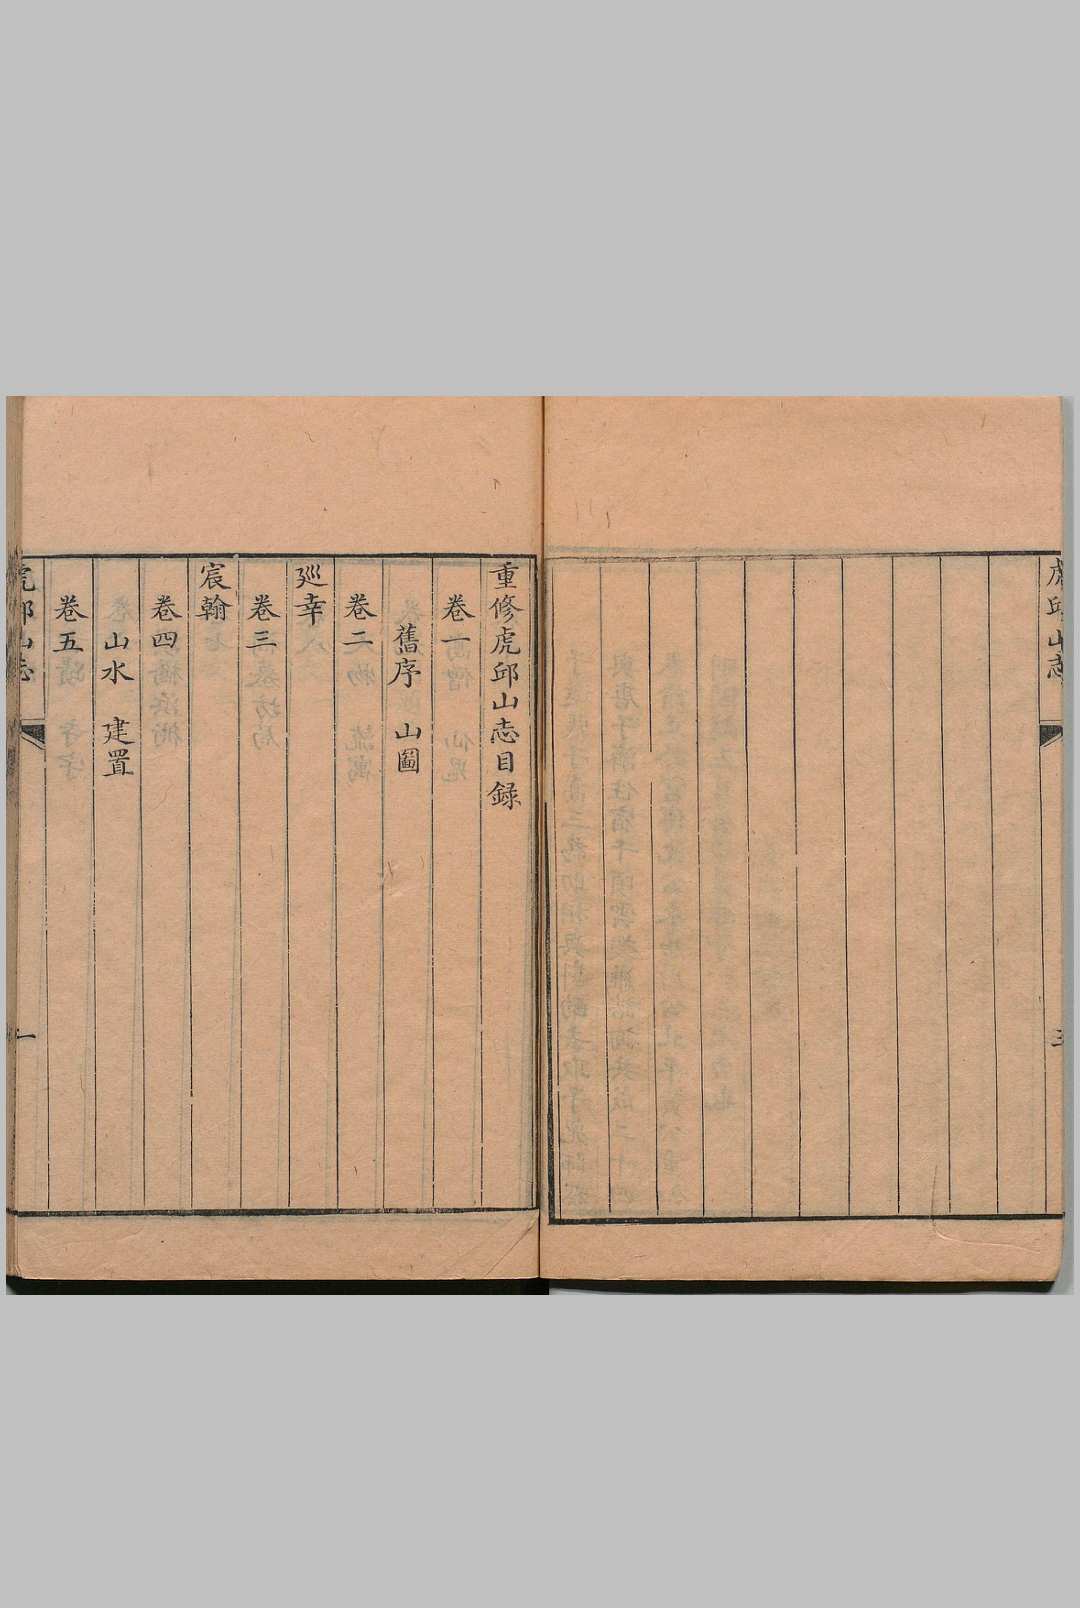 虎邱山志
三
重修虎邱山志目録
卷一
舊序　山圖
卷二
廵幸
卷三
宸翰
卷四
山水　建置
卷五
虎邱山志
一